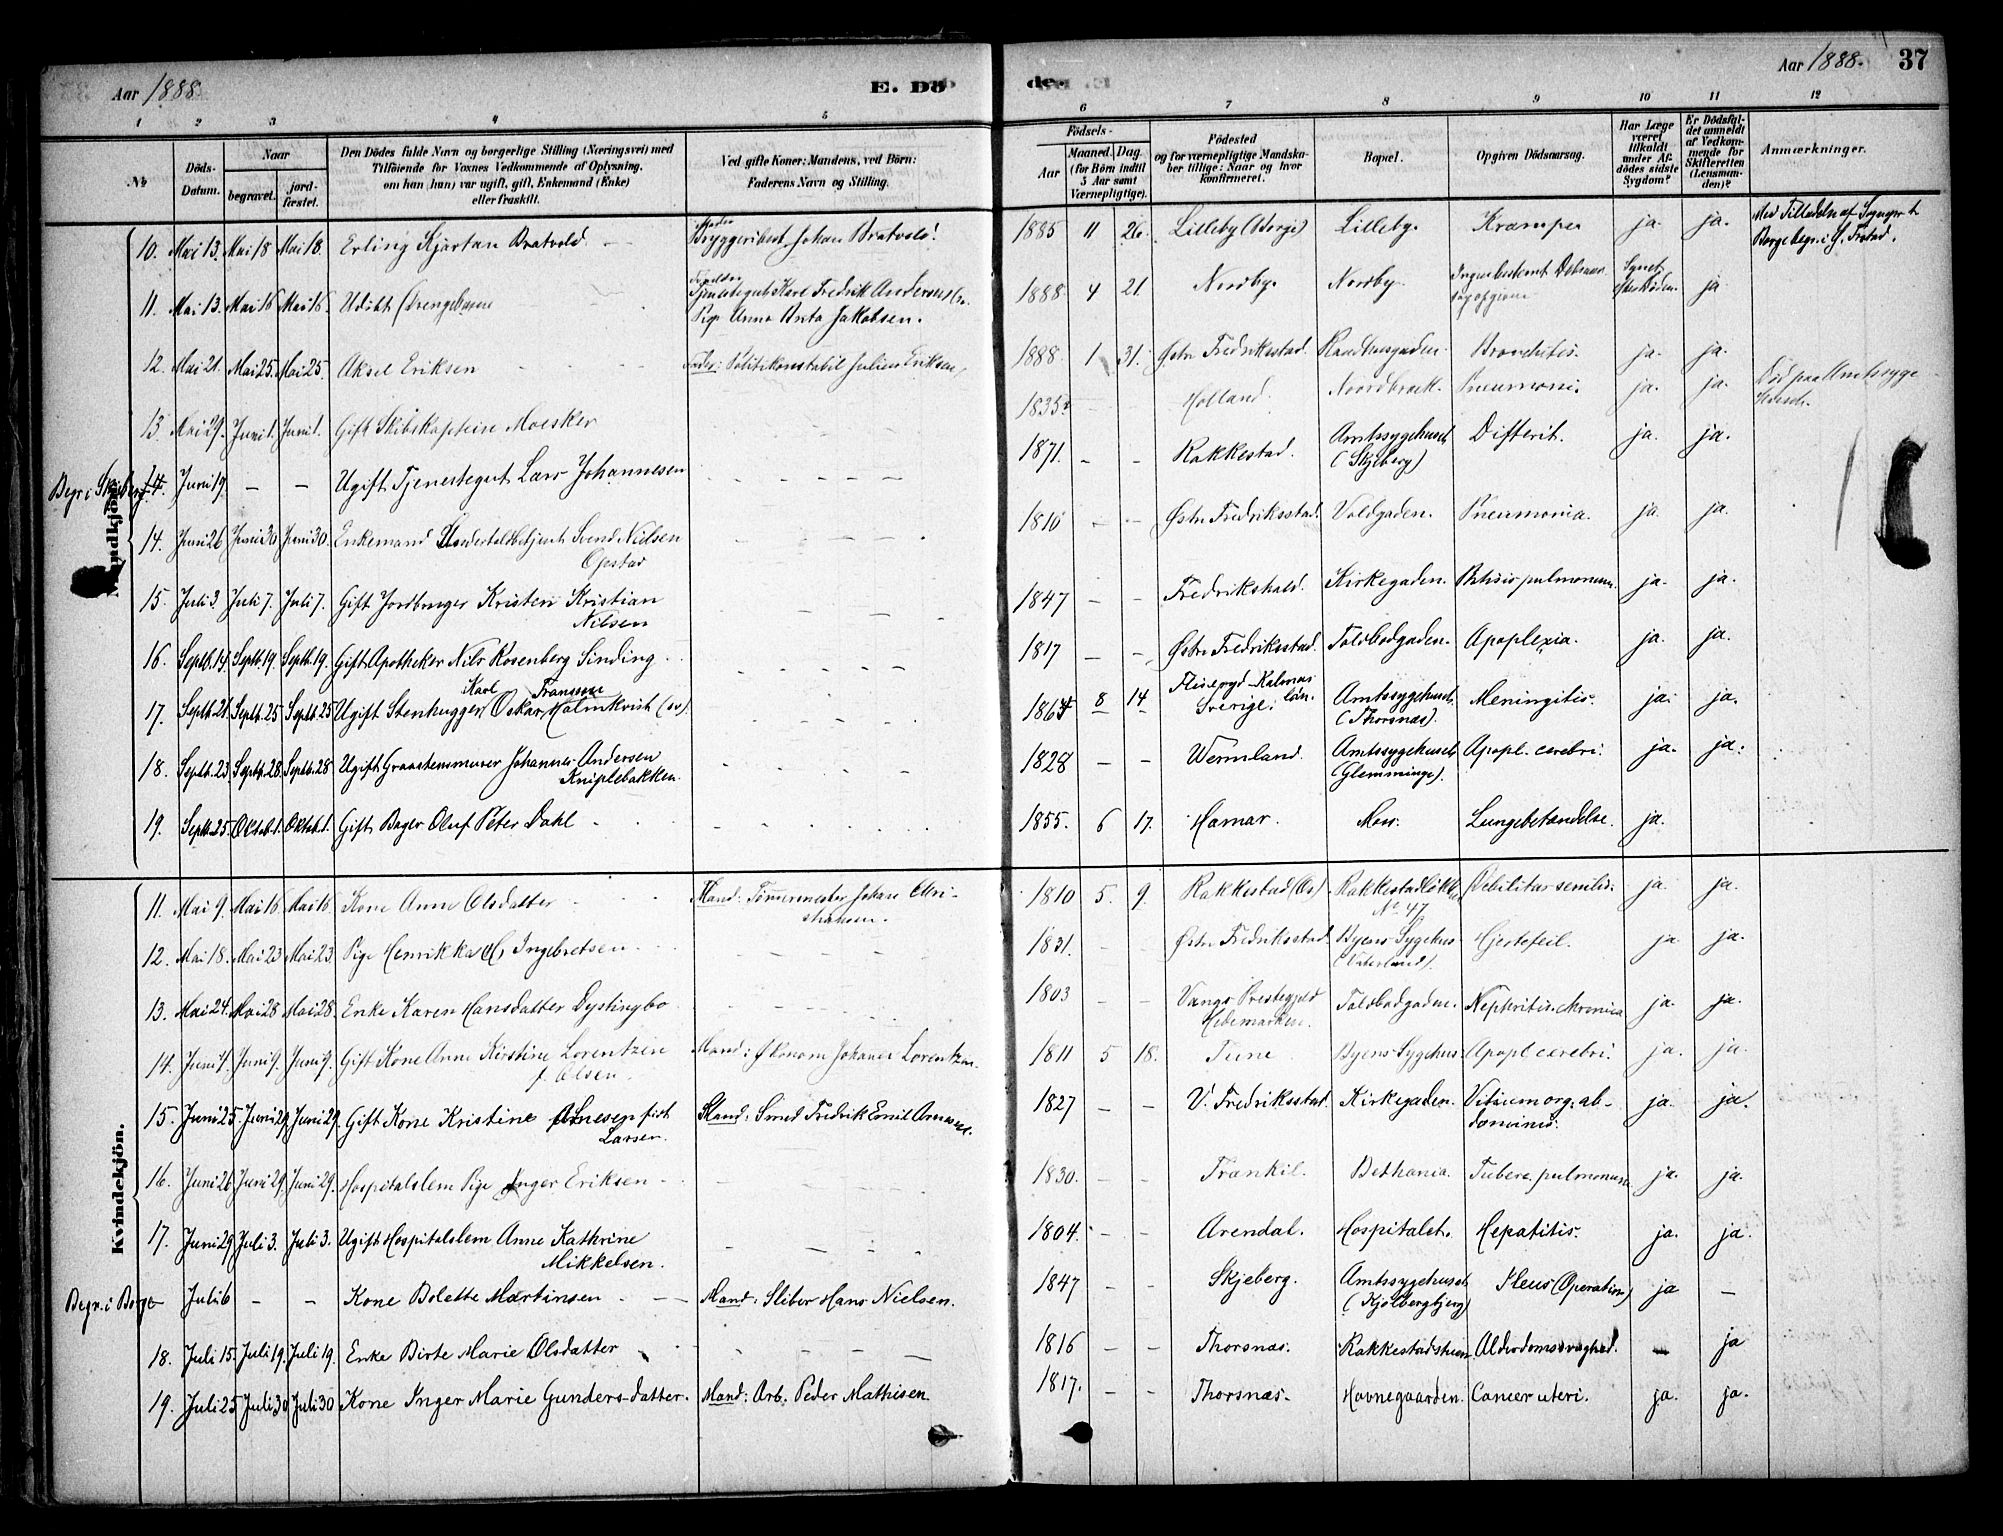 Aar 1888.
E. Dö
de.
Aar 1888.
37
1 2 3 4 5 6 7 8 9 10 11 12
No
Döds-
Datum.
Naar
begravet.
jord-
fæstet.
Den Dödes fulde Navn og borgerlige Stilling (Næringsvei) med
Tilföiende for Voxnes Vedkommende af Oplysning,
om han (hun) var ugift, gift, Enkemand (Enke)
eller fraskilt.
Ved gifte Koner: Mandens, ved Börn:
Faderens Navn og Stilling.
Födsels-
Aar
Maaned. Dag.
(for Börn indtil
5 Aar samt
Værnepligtige).
Födested
og for værnepligtige Mandska-
ber tillige: Naar og hvor
konfirmeret.
Bopæl.
Opgiven Dödsaarsag.
Har Læge
været
tilkaldt
under Af-
dödes sidste
Sygdom?
Er Dödsfal-
det anmeldt
af Vedkom-
mende for
Skifteretten
(Lensman-
den)?
Anmærkninger.
Mandkjön.
10. Mai 13. Mai 18 Mai 18. Erling Kjartan Bratvold Fader Bryggeribest. Johan Bratvold. 1885 11 26. Lilleby (Borge) Lilleby. Krampe ja. ja. Med Tilladelse af Sognepr. i
Borge begr. i G. Frstad.
11. Mai 13. Mai 16 Mai 16. Udöbt Drengebarn Forældre
Tjenestegut Karl Fredrik Anderssen
Pige Anna Anta Jakobsen. 1888. 4 21. Nordby. Nordby. Ingen bestemt Dödsaar-
sag opgiven Synet
efter Döden. ja
12. Mai 21. Mai 25. Mai 25. Aksel Eriksen Fader: Politikonstabil Julius Eriksen 1888. 1 31. Östre Fredriksstad. Raadhusgaden. Bronchitis. ja. ja.
13. Mai 29. Juni 1. Juni 1. Gift Skibskaptein Moesker 1835 Holland. Noordbroek. Pneumoni. ja. ja. Död paa Amtssyge
huset.
Begr. i Skjeberg 14. Juni 19. – – Ugift Tjenestegut Lars Johannesen 1871. – – Rakkestad. Amtssygehuset
(Skjeberg) Difterit. ja. ja.
14. Juni 26 Juni 30 Juni 30. Enkemand Undertoldbetjent Svend Nielsen
Opstad 1816 Östre Fredriksstad. Voldgaden. Pneumonia. ja. ja.
15. Juli 3. Juli 7. Juli 7. Gift Jordbruger Kristen Kristian
Nilsen 1847 – – Fredrikshald. Kirkegaden. Phtisis pulmonum. ja. ja.
16. Septb. 14. Septb. 19. Septb. 19. Gift Apotheker Nils Rosenberg Sinding 1817 – – Östre Fredriksstad. Toldbodgaden. Apoplexia. ja. ja.
17. Septb. 21. Septb. 25 Septb. 25 Ugift Stenhugger Karl Oskar Fransson Malmkvist (sv). 1864 8 14 Kalmar
län. Sverige. Amtssygehuset
(Thorsnæs). Meningitis. ja. ja.
18. Septb. 23 Septb. 28. Septb. 28 Ugift Graastensmurer Johannes Andersen
Kniplebakken. 1828 – – Wermland. Amtssygehuset
(Glemminge). Apopl. cerebri. ja. ja.
19. Septb. 25. Oktob. 1. Oktob. 1. Gift Bager Oluf Peter Dahl 1855. 6 17. Hamar. Moss. Lungebetændelse. ja.
Kvindekjön.
11. Mai 9. Mai 16. Mai 16. Kone Anne Olsdatter Mand: Tömmermester Johan Chri-
stiansen. 1810 5. 9. Rakkestad (Os) Rakkestadlökken
No 47 Debilitas senilis. ja. ja.
12. Mai 18. Mai 23 Mai 23. Pige Henrikka Ingebretsen 1831. – – Östre Fredriksstad. Byens Sygehus
(Vaterland). Hjertefeil. ja ja.
13. Mai 24. Mai 28 Mai 28. Enke Karen Hansdatter Dystingbo 1803 – – Vangs Prestegjeld
Hedemarken. Toldbodgaden. Nephritis chronica ja. ja.
14. Juni 4. Juni 9. Juni 9. Gift Kone Anne Kirstine Lorentzen
f. Olsen. Mand: Økonom Johanes Lorentzen. 1811 5 18. Tune Byens Sygehus. Apopl. cerebri. ja. ja.
15. Juni 25. Juni 29. Juni 29. Gift Kone Kristine Arnesen född
Larsen. Mand: Smed Fredrik Emil Arnesen. 1827 – – V. Fredriksstad. Kirkegaden. Vitium org. ab-
dominis. ja. ja.
16. Juni 26 Juni 29. Juni 29. Hospitalslem Pige Inger Eriksen 1830. – – Trankil. Bethania. Tuberc. pulmonum ja. ja.
17. Juni 29 Juli 3. Juli 3. Ugift Hospitalslem Anne Kathrine
Mikkelsen. 1804. – – Arendal. Hospitalet. Hepatitis. ja. ja.
Begr. i Borge Juli 6 – – Kone Bolette Martinsen Mand: Sliber Hans Nielsen. 1847 – – Skjeberg. Amtssygehuset
(Kjölbergbjerg) Ileus (Operation) ja –
18. Juli 15. Juli 19. Juli 19. Enke Birte Marie Olsdatter 1816 – – Thorsnæs. Alderdomssvaghed. – ja
19. Juli 25 Juli 30 Juli 30 Kone Inger Marie Gunders-datter. Mand: Arb. Peder Mathisen 1817. – – Thorsnæs. Havnegaarden. Cancer uteri. ja. ja.